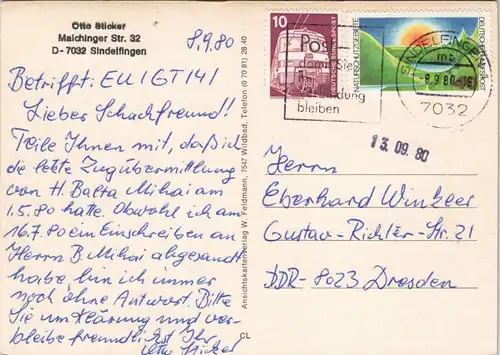 Otto Sticker
Maichinger Str. 32
D - 7032 Sindelfingen
8.9.80
Betrifft: EU/GT 141
Lieber Schachfreund!
Teile Ihnen mit, daß ich
die letzte Zugübermittlung
von H. Balta Mihai am
1.5.80 hatte. Obwohl ich am
16.7.80 ein Einschreiben an
Herrn B. Mihai abgesandt
habe bin ich immer
noch ohne Antwort. Bitte
Sie um Klärung und ver-
bleibe freundlichst Ihr
Otto Sticker
Ansichtskartenverlag W. Feldmann, 7547 Wildbad, Telefon (0 70 81) 28 40
CL
10
DEUTSCHE BUNDESPOST
NATURSCHUTZGEBIETE
DEUTSCHE BUNDESPOST
Post
damit Sie
in
Verbindung
bleiben
SINDELFINGEN
mb
-8.9.80-16
7032
13.09.80
Herrn
Eberhard Winkler
Gustav-Richter-Str. 21
DDR-8023 Dresden